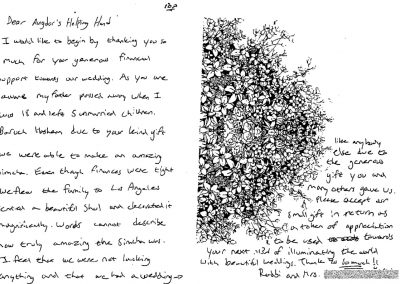 בס"ד
Dear Anydor's Helping Hand
I would like to begin by thanking you so
much for your generous financial
support towards our wedding. As you are
aware my father passed away when I
was 18 and left 5 unmarried children.
Baruch Hashem due to your kind gift
we were able to make an amazing
simcha. Even though finances were tight
we flew the family to Los Angeles
rented a beautiful Shul and decorated it
magnificently. Words cannot describe
how truly amazing the Simcha was.
I feel that we were not lacking
anything and that we had a wedding
like anybody
else due to
the generous
gift you and
many others gave us.
Please accept our
small gift in return as
a token of appreciation
to be used towards
your next of illuminating the world
with beautiful weddings. Thank so much!!
Rabbi and Mrs.